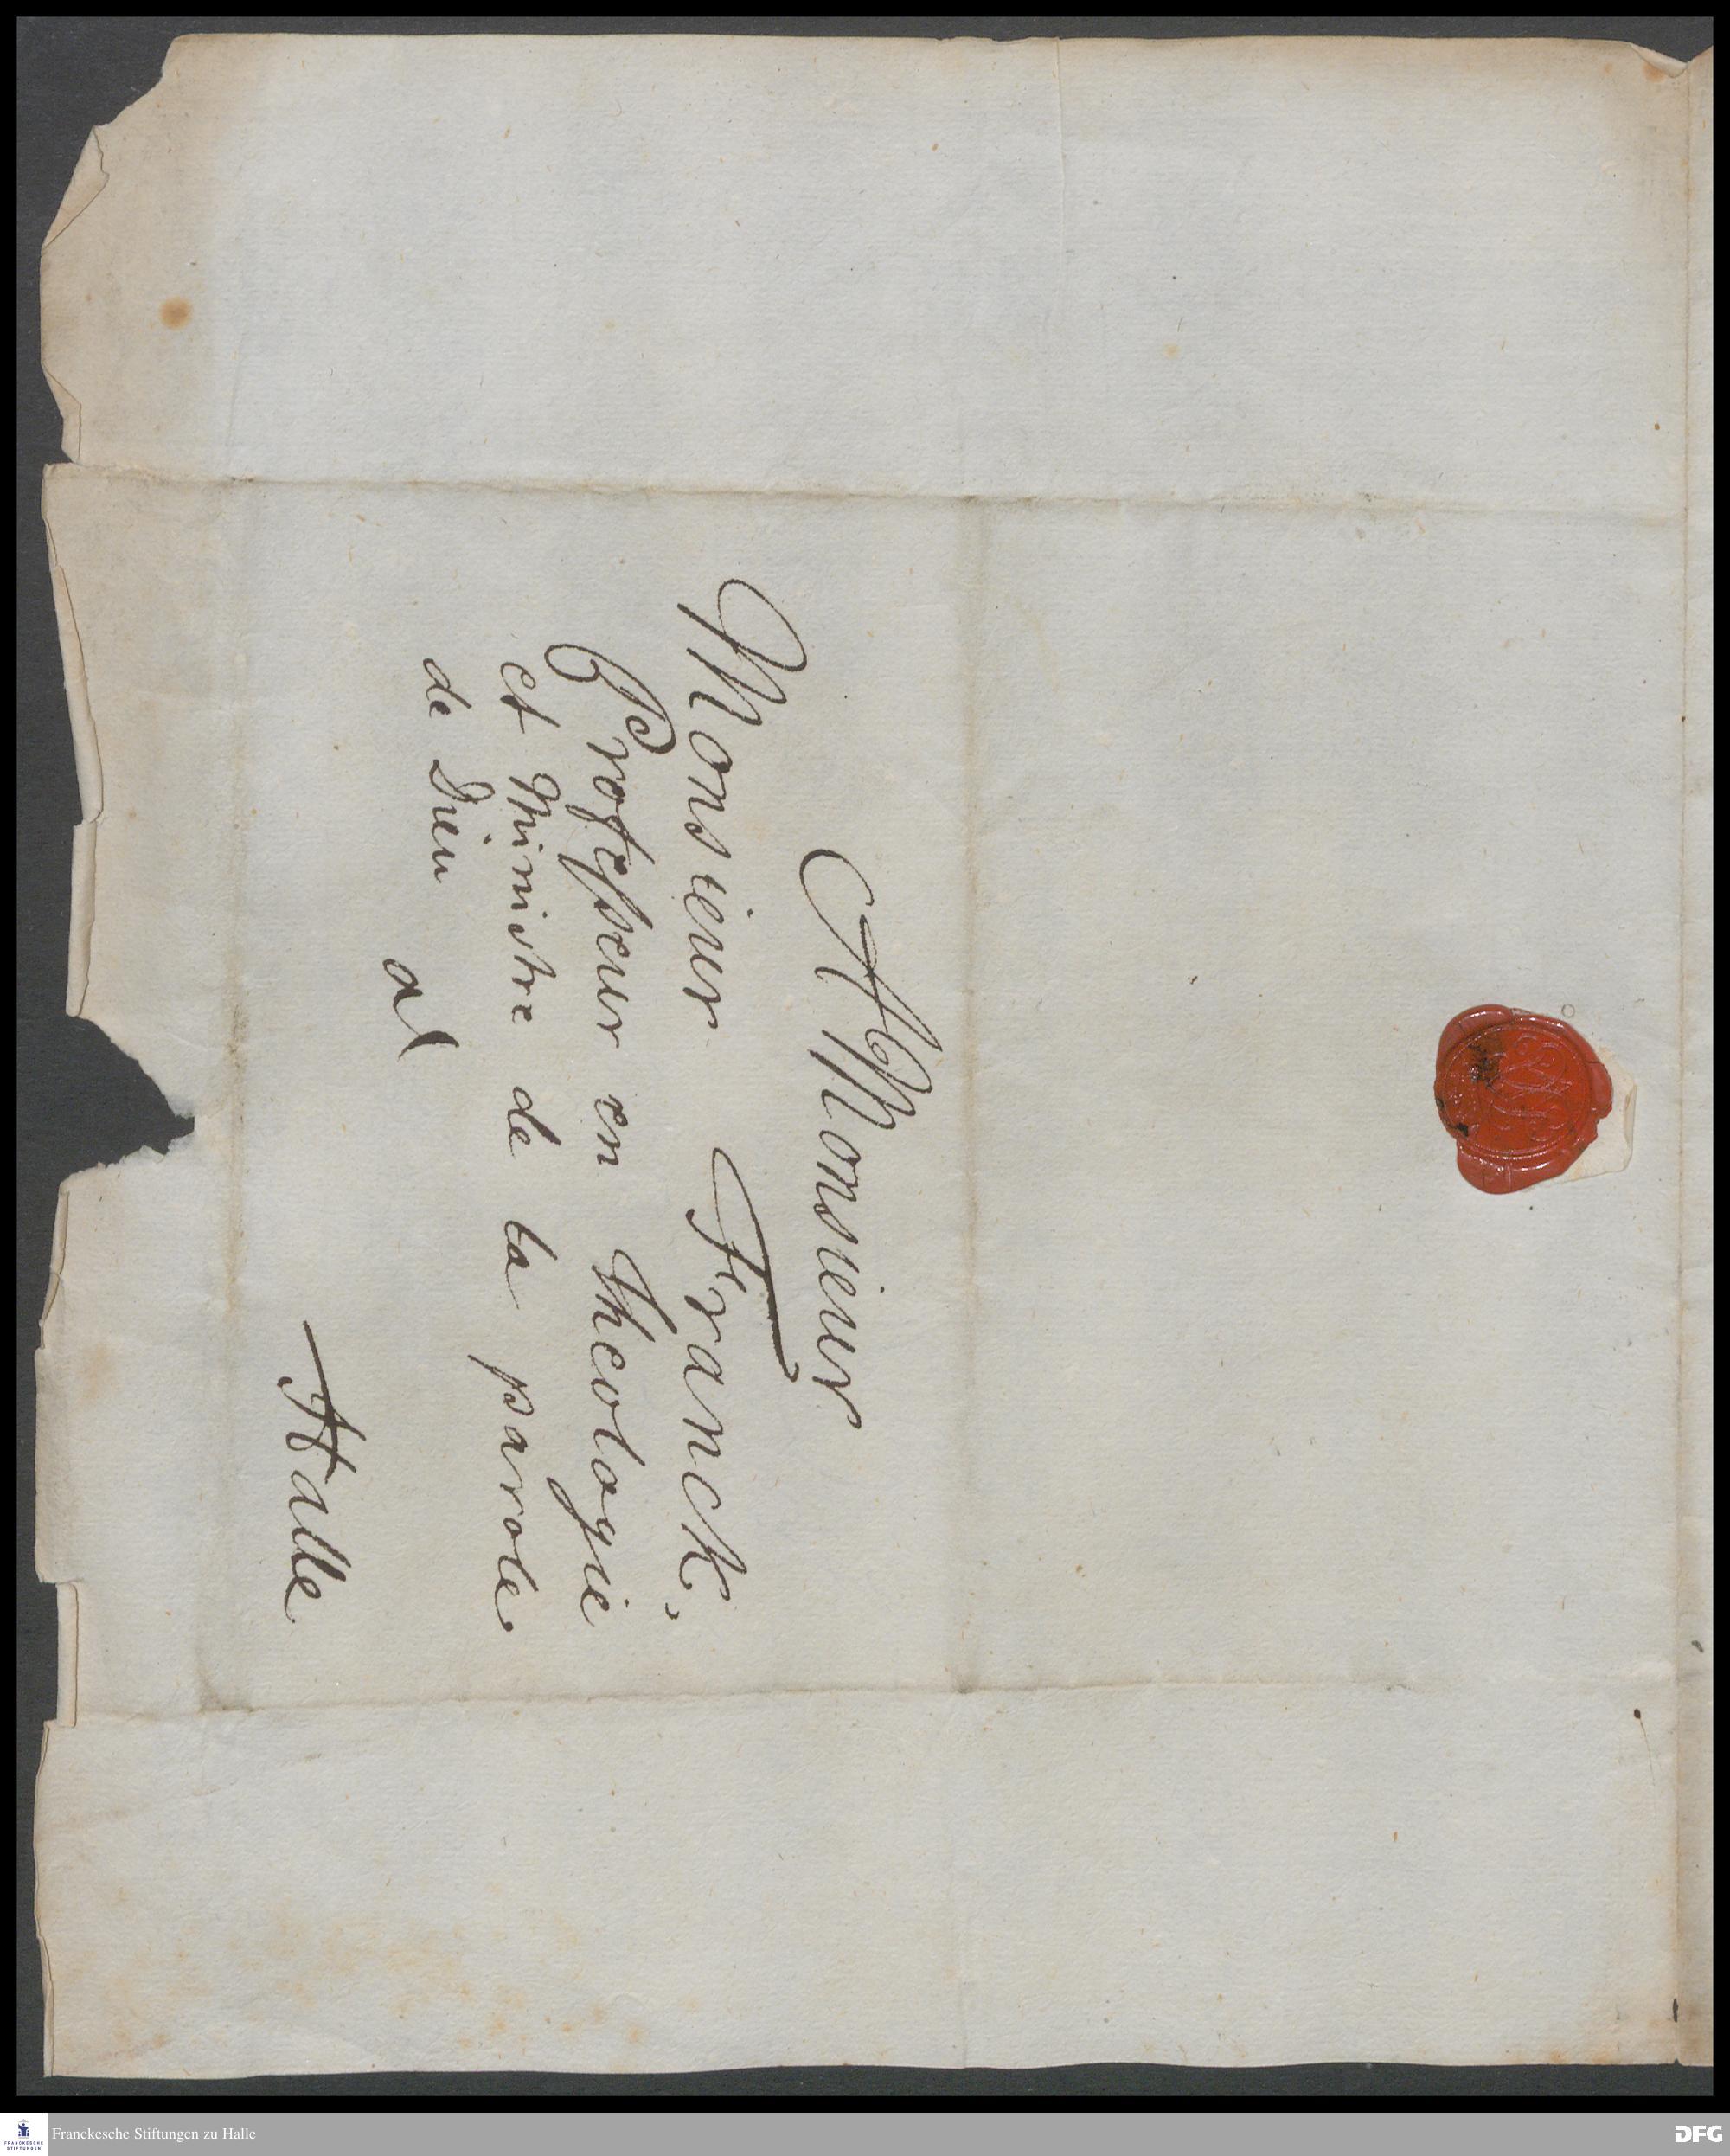 A Monsieur
Monsieur Franck,
Professeur en theologie
et Ministre de la parole
de Dieu
a
Halle
Franckesche Stiftungen zu Halle
FRANCKESCHE
STIFTUNGEN
DFG